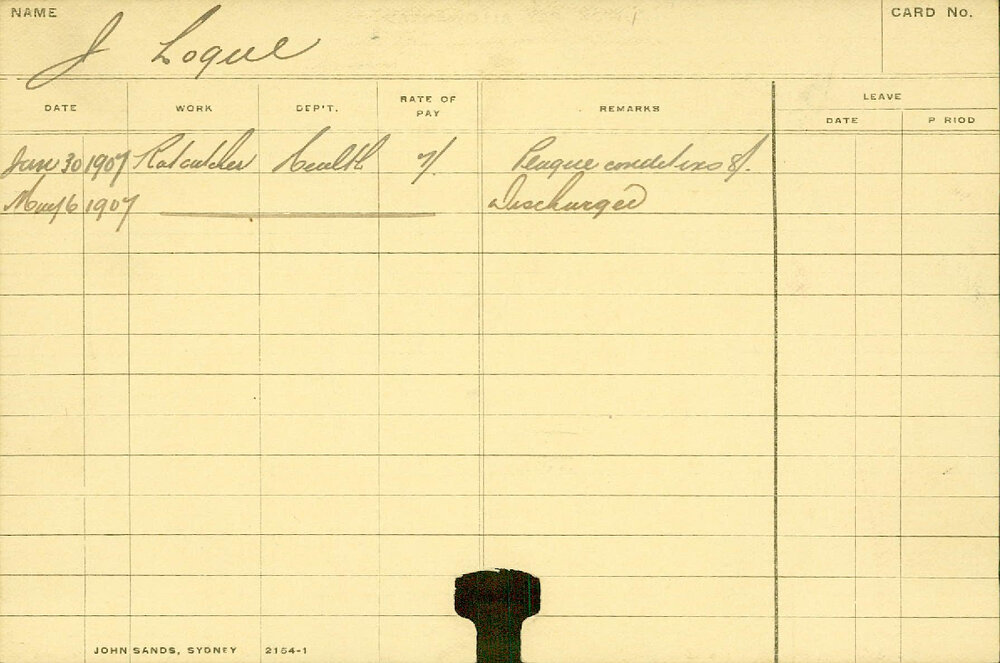 NAME
CARD No.
J Logue
DATE WORK DEP'T. RATE OF PAY REMARKS LEAVE
DATE P RIOD
Jan 30 1907 Ratcatcher Health 7/. Plague conditions 8/.
May 6 1907 Discharged
JOHN SANDS, SYDNEY 2154-1